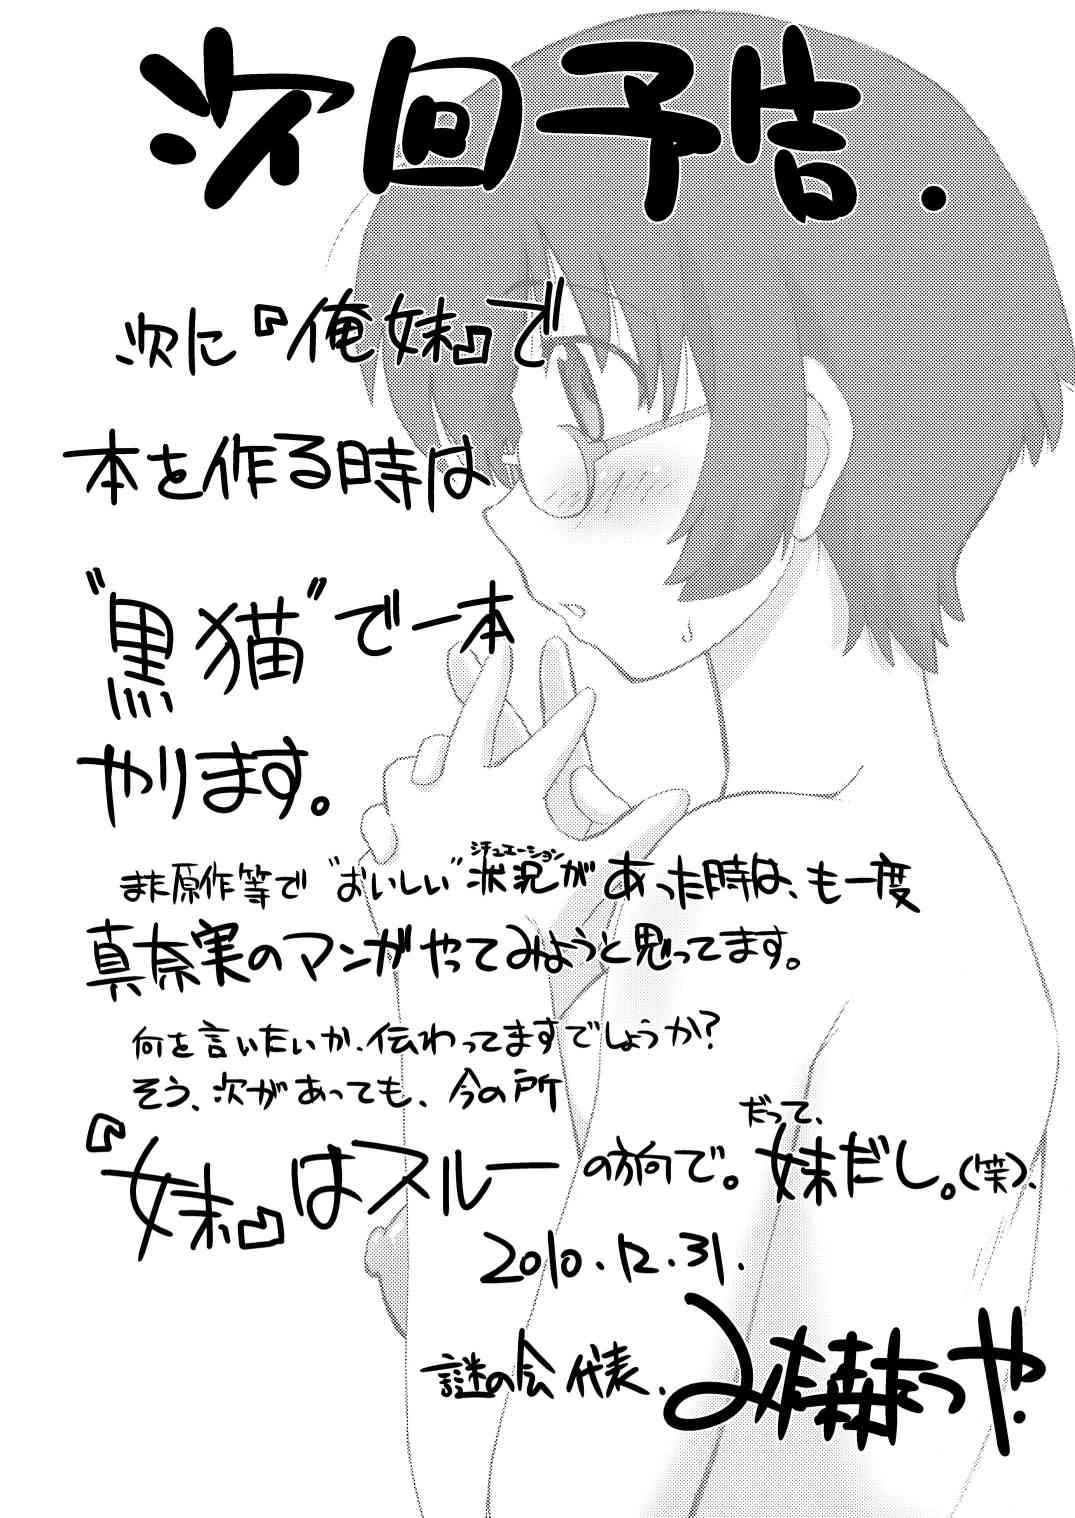 次回予告.
次に『俺妹』で
本を作る時は
"黒猫"で一本
やります。
また原作等で"おいしい"状況がシチュエーション あった時は、も一度
真奈実のマンガやってみようと思ってます。
何を言いたいか、伝わってますでしょうか?
そう、次があっても、今の所
『妹』はスルーの方向で。だって、妹だし。(笑)、
2010.12.31.
謎の会 代表、